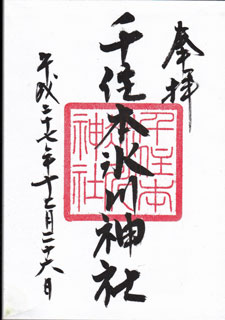 奉拝
千住本氷川神社
平成二十七年十二月二十六日
千住本
氷川
神社